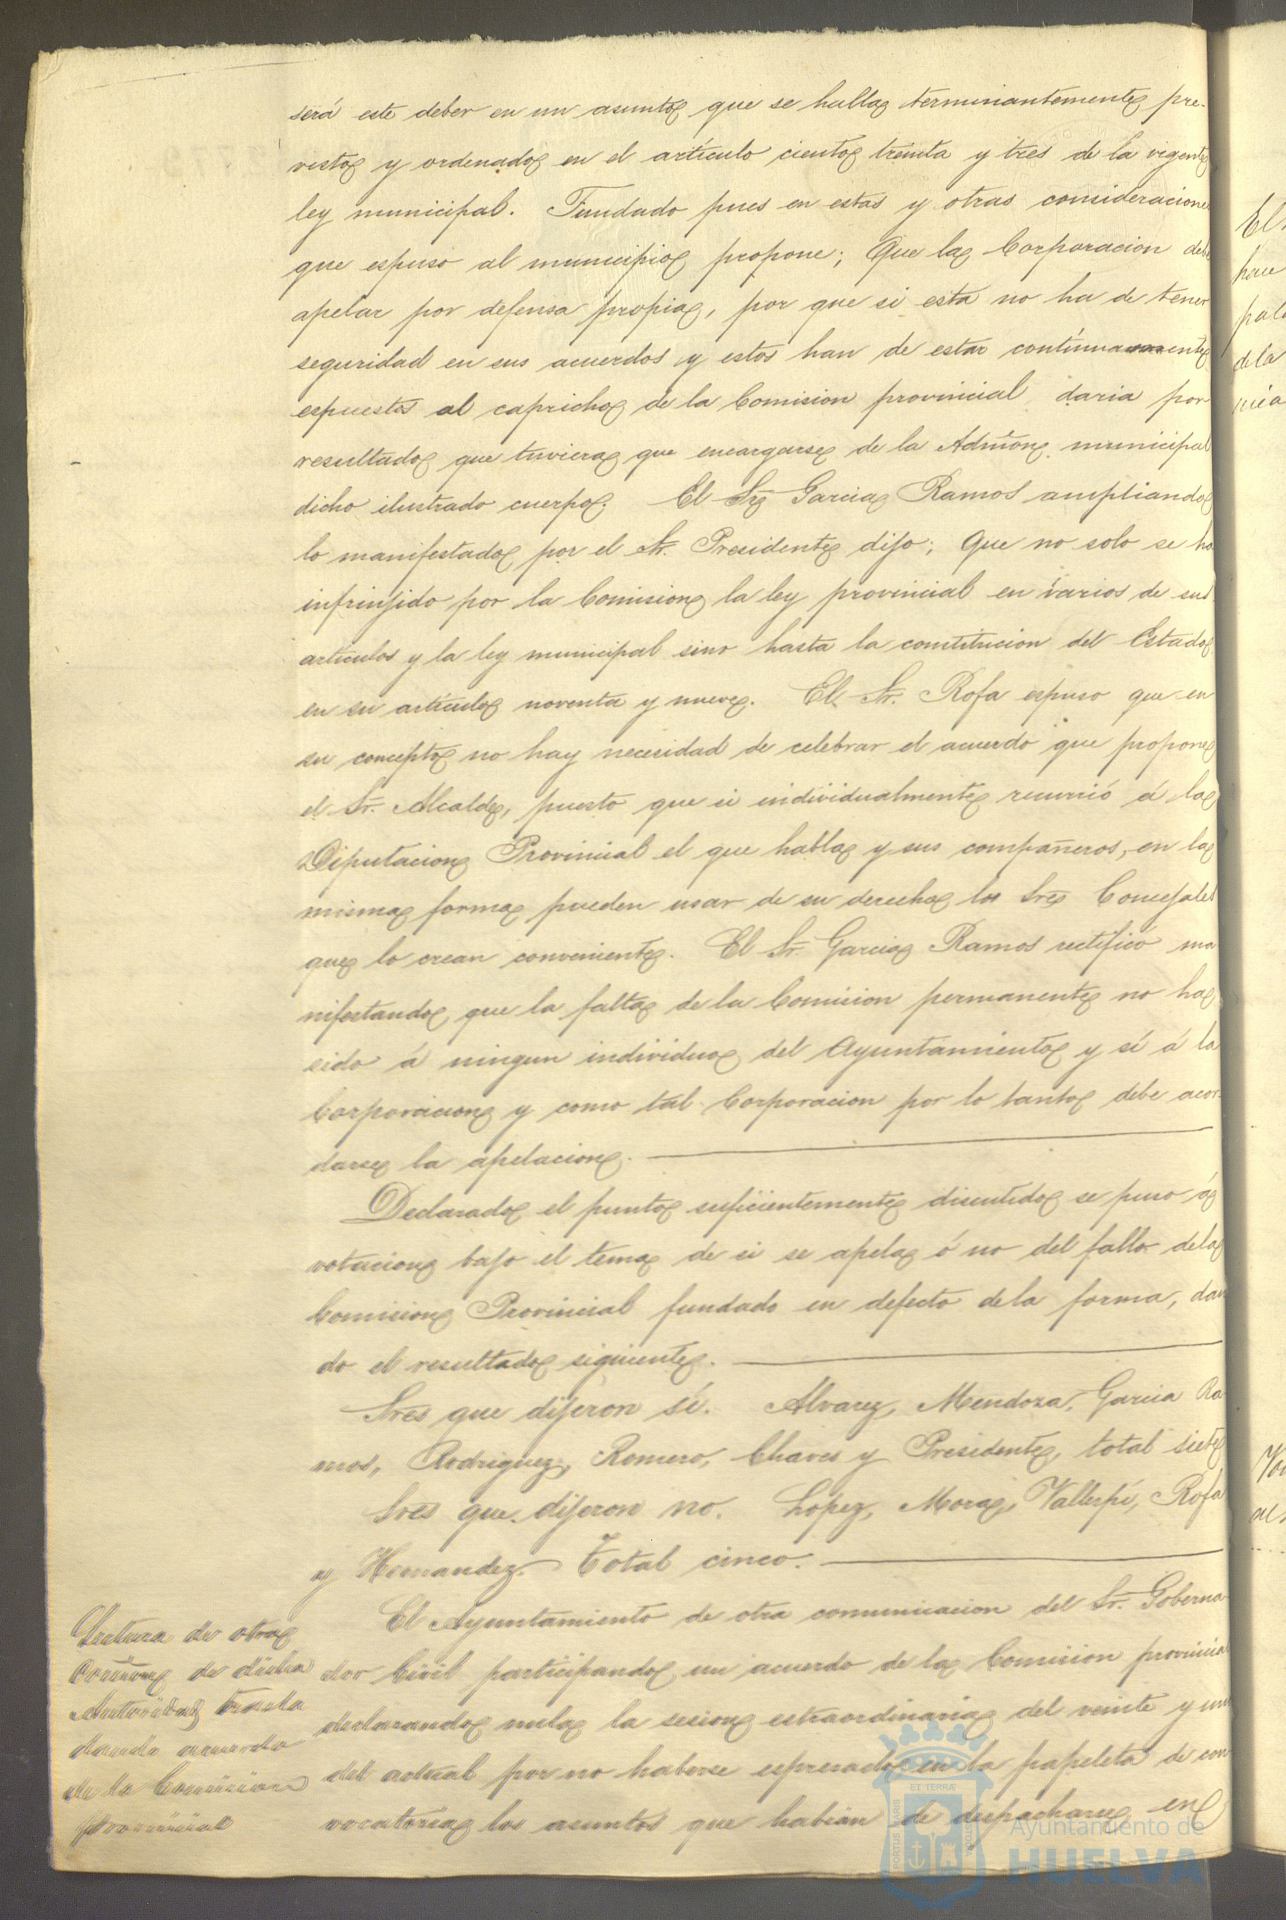 será este deber en un asunto que se halla terminantemente pre-
visto y ordenado en el artículo ciento treinta y tres de la vigente
ley municipal. Fundado pues en estas y otras consideraciones
que espuso al municipio propone; Que la Corporacion debe
apelar por defensa propia, por que si esta no ha de tener
seguridad en sus acuerdos y estos han de estar contínuamente
espuestos al capricho de la Comision provincial daria por
resultado que tuviera que encargarse de la Admon. municipal
dicho ilustrado cuerpo. El Sr. Garcia Ramos ampliando
lo manifestado por el Sr. Presidente dijo; Que no solo se ha
infrinjido por la Comision la ley provincial en varios de sus
artículos y la ley municipal sino hasta la constitucion del Estado
en su artículo noventa y nueve. El Sr. Rofa espuso que en
su concepto no hay necesidad de celebrar el acuerdo que propone
el Sr. Alcalde, puesto que si individualmente recurrió á la
Diputacion Provincial el que habla y sus compañeros, en la
misma forma pueden usar de su derecho los Sres Concejales
que lo crean conveniente. El Sr. Garcia Ramos rectificó ma
nifestando que la falta de la Comision permanente no ha
sido á ningun individuo del Ayuntamiento y sí á la
Corporacion y como tal Corporacion por lo tanto debe acor-
darse la apelacion.
Declarado el punto suficientemente discutido se puso á
votacion bajo el tema de si se apela ó no del fallo de la
Comision Provincial fundado en defecto de la forma, dan
do el resultado siguiente.
Sres que dijeron sí. Alvarez, Mendoza, Garcia Ra-
mos, Rodriguez, Romero, Chaves y Presidente, total siete
Sres que dijeron no. Lopez, Mora, Vallespí, Rofa
y Hernandez. Total cinco.
Lectura de otra
comunon de dicha
Autoridad trasla
dando acuerdo
de la Comision
provincial
El Ayuntamiento de otra comunicacion del Sr. Goberna
dor Civil participando un acuerdo de la Comision provincial
declarando nula la sesion estraordinaria del veinte y uno
del actual por no haberse espresado en la papeleta de con
vocatoria los asuntos que habian de despacharse en
El
pala
de la
ET TERRÆ
PORTUS MARIS
CUSTODIA
Ayuntamiento de
HUELVA